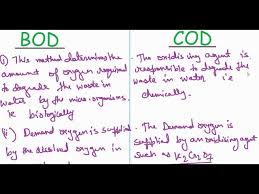 BOD
(i) This method determines the
amount of oxygen required
to degrade the waste in
water by the micro-organisms
ie biologically
(ii) Demand oxygen is supplied
by the dissolved oxygen in
COD
. The oxidising agent is
responsible to degrade the
waste in water i.e
chemically.
. The Demand oxygen is
supplied by an oxidising agent
such as K2Cr2O7